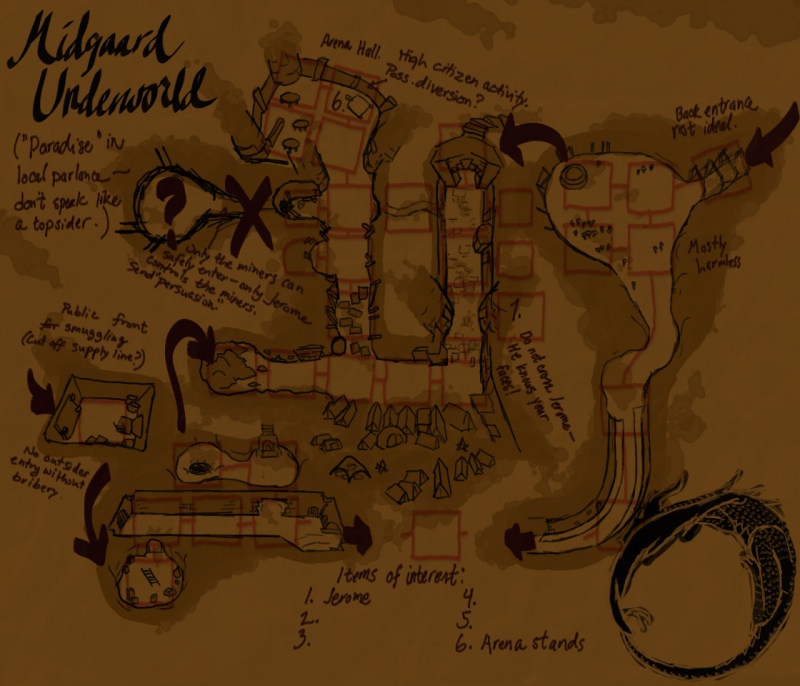 Midgaard
Underworld
("Paradise" in
local parlance—
don't speak like
a topsider.)
Arena Hall. High citizen activity.
Poss. diversion?
6.
Back entrance
not ideal.
?
X
Only the miners can
safely enter—only Jerome
controls the miners.
Send "persuasion"
Mostly
harmless
Public front
for smuggling
(Cut off supply line?)
1. Do not cross Jerome—
He knows your
faces!
No outsider
entry without
bribery.
Items of interest:
1. Jerome
2.
3.
4.
5.
6. Arena stands